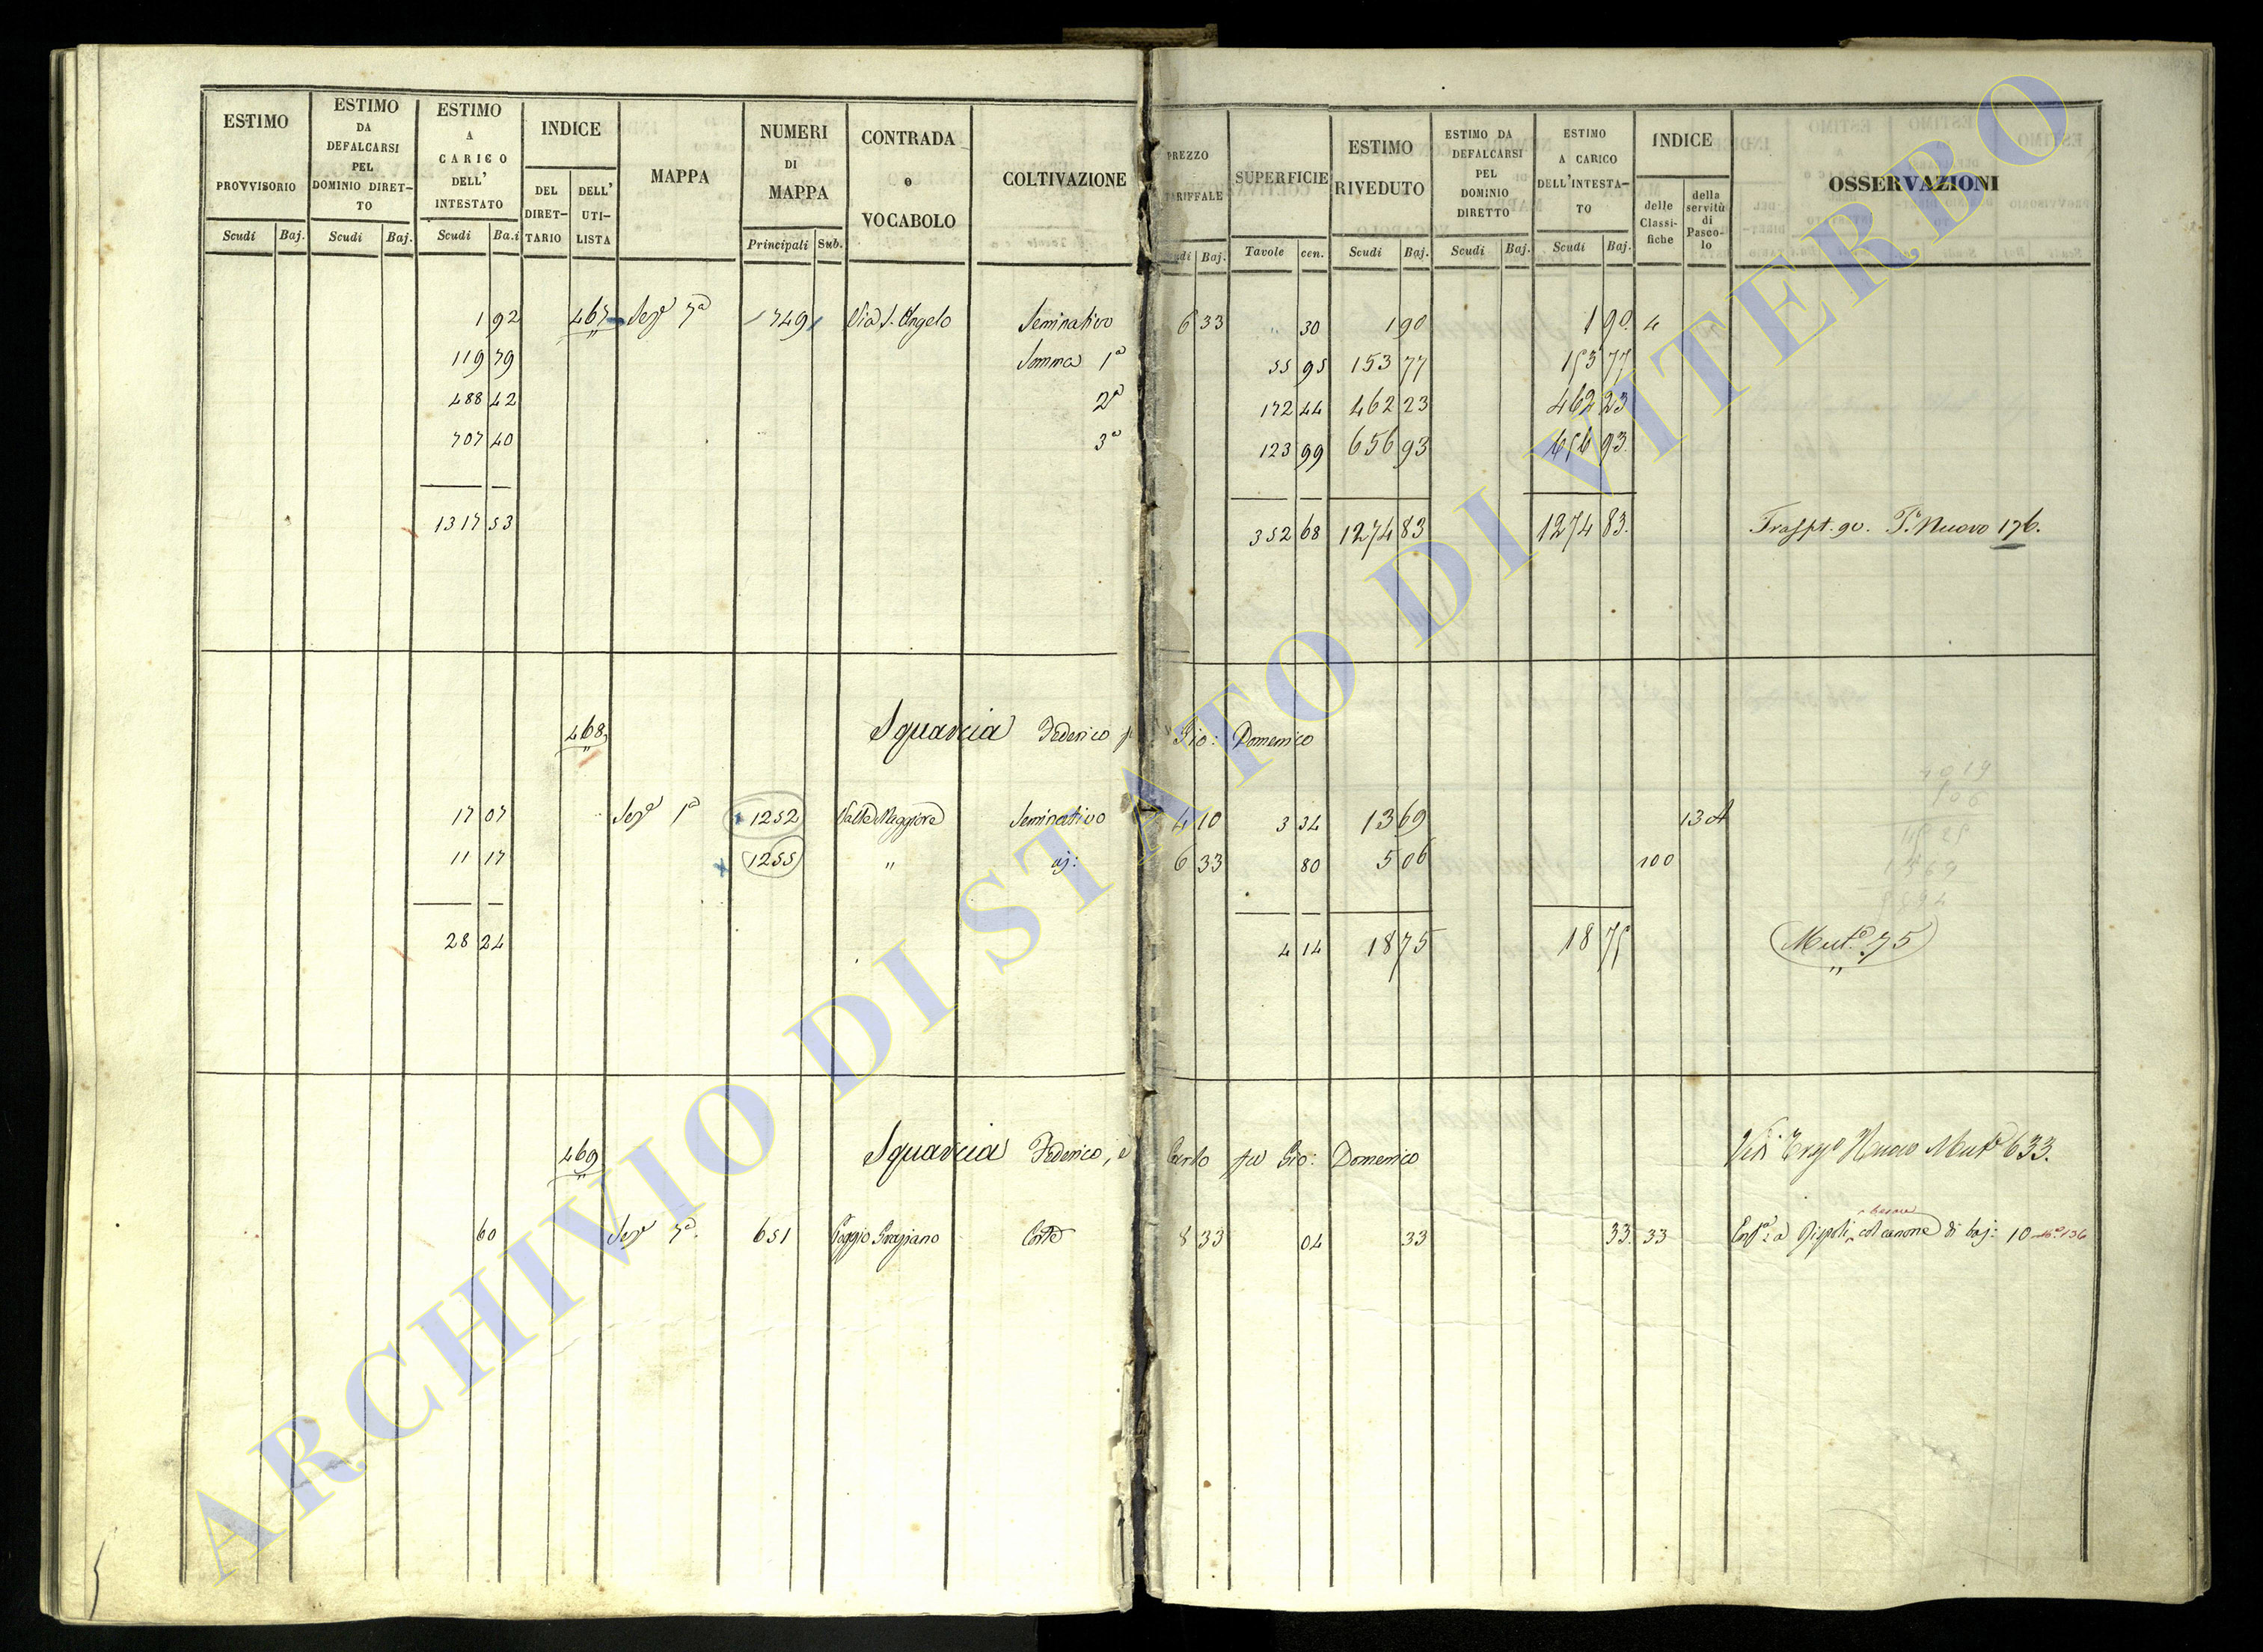 ESTIMO PROVVISORIO Scudi Baj.
ESTIMO DA DEFALCARSI PEL DOMINIO DIRETTO Scudi Baj.
ESTIMO A CARICO DELL' INTESTATO Scudi Ba.i
INDICE DEL DIRETTARIO DELL' UTILISTA
MAPPA
NUMERI DI MAPPA Principali Sub.
CONTRADA o VOCABOLO
COLTIVAZIONE
PREZZO TARIFFALE Scudi Baj.
SUPERFICIE Tavole cen.
ESTIMO RIVEDUTO Scudi Baj.
ESTIMO DA DEFALCARSI PEL DOMINIO DIRETTO Scudi Baj.
ESTIMO A CARICO DELL'INTESTATO Scudi Baj.
INDICE delle Classifiche della servitù di Pascolo
OSSERVAZIONI
1 92 467 Sezᵉ 7ª 749 Via S. Angelo Seminativo 6 33 " 30 1 90 1 90 4
119 79 Somma 1ª 55 95 153 77 153 77
488 42 2ª 172 44 462 23 462 23
707 40 3ª 123 99 656 93 656 93
1317 53 352 68 1274 83 1274 83 Traspt. 90. P. Nuovo 176.
468 Squarcia Federico Gio: Domenico
17 07 Sezᵉ 1ª 1252 Valle Maggiore Seminativo 4 10 3 34 13 69 13 A
11 17 1255 " 6 33 80 5 06 100
28 24 4 14 18 75 18 75 Mutᵃ 75
469 Squarcia Federico, e Carlo fu Gio: Domenico Nuovo Mutᵃ 633.
60 Sezᵉ 7ª 651 Poggio Graziano Corte 8 33 04 33 33 33 Enfᵃ a col canone di baj: 10 Nº 136
ARCHIVIO DI STATO DI VITERBO